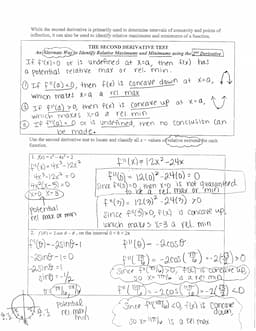 While the second derivative is primarily used to determine intervals of concavity and points of
inflection, it can also be used to identify relative maximums and minimums of a function.
THE SECOND DERIVATIVE TEST
An Alternate Way to Identify Relative Maximums and Minimums using the 2nd Derivative
If f'(x)=0 or is undefined at x=a, then f(x) has
a potential relative max or rel. min.
① If f''(a)<0, then f(x) is concave down at x=a,
which makes x=a a rel max
② If f''(a)>0, then f(x) is concave up at x=a,
which makes x=a a rel min
③ If f''(a)=0 or is undefined, then no conclusion can
be made.
Use the second derivative test to locate and classify all x – values of relative extrema for each
function.
1. f(x) = x⁴ – 4x³ – 2
f'(x)=4x³-12x²
4x³-12x²=0
4x²(x-3)=0
x=0, x=3
potential
rel max or min
f''(x)=12x²-24x
f''(0)=12(0)²-24(0)=0
Since f''(0)=0, then x=0 is not guaranteed
to be a rel max or min
f''(3)=12(3)²-24(3)>0
Since f''(3)>0, f(x) is concave up,
which makes x=3 a rel min
f'(θ)=-2sinθ-1
-2sinθ-1=0
-2sinθ=1
potential
rel max
f''(θ)=-2cosθ